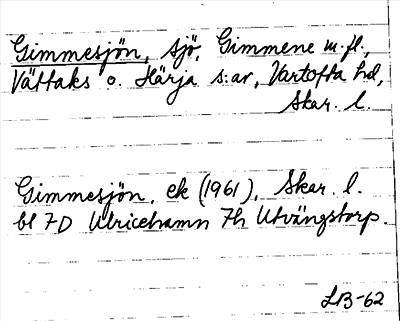 Gimmesjön, sjö, Gimmene m.fl.,
Vättaks o. Härja s:ar, Vartofta hd,
Skar. l.
Gimmesjön. ek (1961), Skar. l.
bl 7D Ulricehamn 7h Utvängstorp.
LB-62